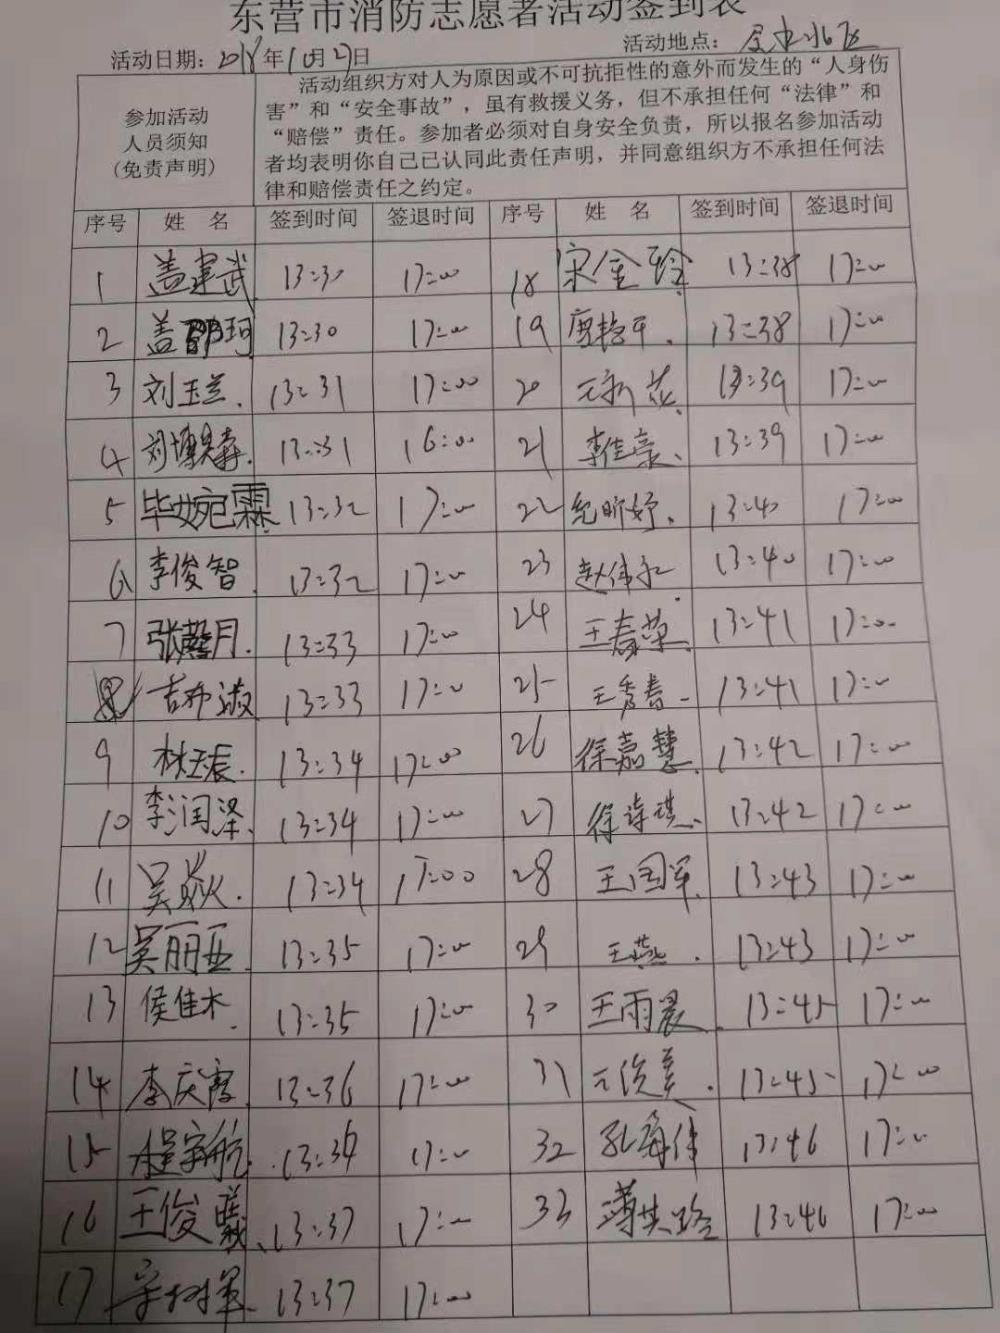 东营市消防志愿者活动签到表
活动日期：2018年10月27日 活动地点：
参加活动
人员须知
(免责声明)
活动组织方对人为原因或不可抗拒性的意外而发生的“人身伤
害”和“安全事故”，虽有救援义务，但不承担任何“法律”和
“赔偿”责任。参加者必须对自身安全负责，所以报名参加活动
者均表明你自己已认同此责任声明，并同意组织方不承担任何法
律和赔偿责任之约定。
序号 姓名 签到时间 签退时间 序号 姓名 签到时间 签退时间
1 盖建武 13:30 17:00 18 宋金玲 13:38 17:00
2 盖 珂 13:30 17:00 19 13:38 17:00
3 刘玉兰. 13:31 17:00 20 13:39 17:00
4 刘博森. 13:31 16:00 21 李佳 13:39 17:00
5 毕婉霖 13:32 17:00 22 昕妤. 13:40 17:00
6 李俊智. 13:32 17:00 23 赵伟 13:40 17:00
7 张馨月. 13:33 17:00 24 王春 13:41 17:00
8 吉布淑 13:33 17:00 25 王秀春 13:41 17:00
9 林玉辰. 13:34 17:00 26 徐嘉慧. 13:42 17:00
10 李润泽. 13:34 17:00 27 徐诗琪. 13:42 17:00
11 吴 13:34 17:00 28 王国军. 13:43 17:00
12 吴丽亚. 13:35 17:00 29 王燕. 13:43 17:00
13 侯佳木. 13:35 17:00 30 王雨晨. 13:45 17:00
14 李庆霞. 13:36 17:00 31 13:45 17:00
15 程宇航. 13:36 17:00 32 13:46 17:00
16 王俊曦、 13:37 17:00 33 13:46 17:00
17 宋树军 13:37 17:00